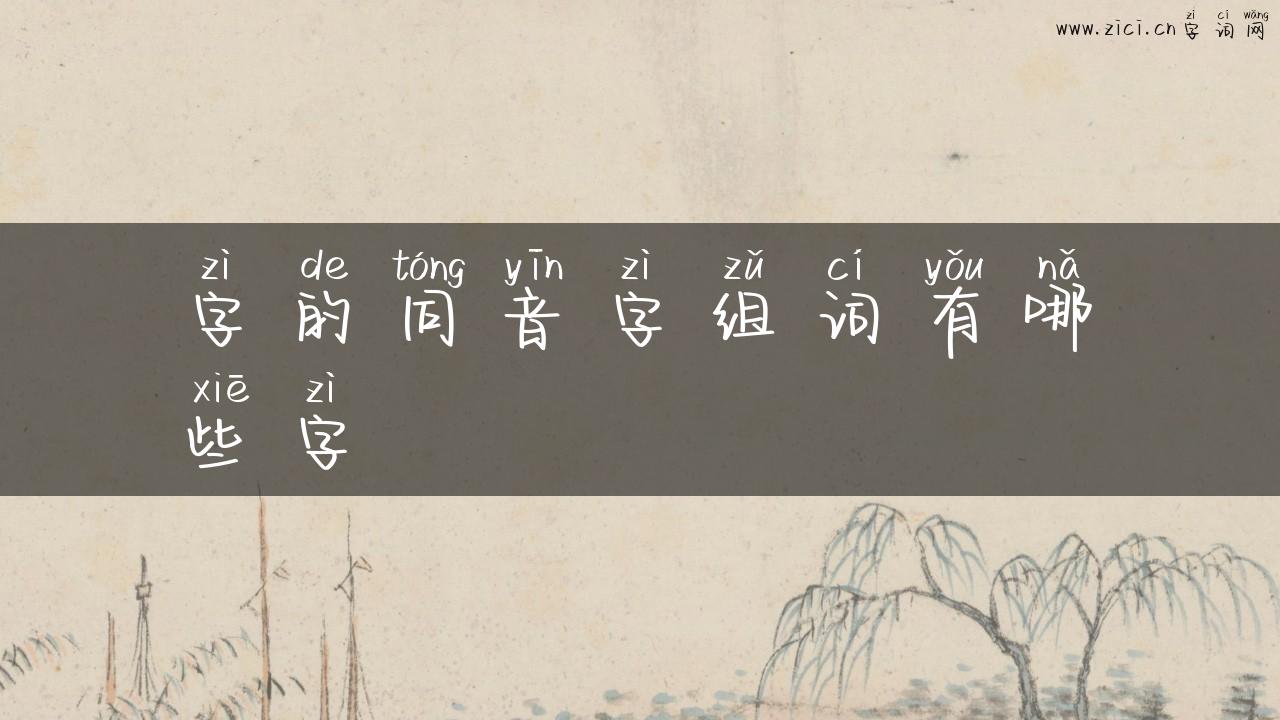 zì cí wǎng
www.zici.cn 字词网
zì de tóng yīn zì zǔ cí yǒu nǎ
字的同音字组词有哪
xiē zì
些字